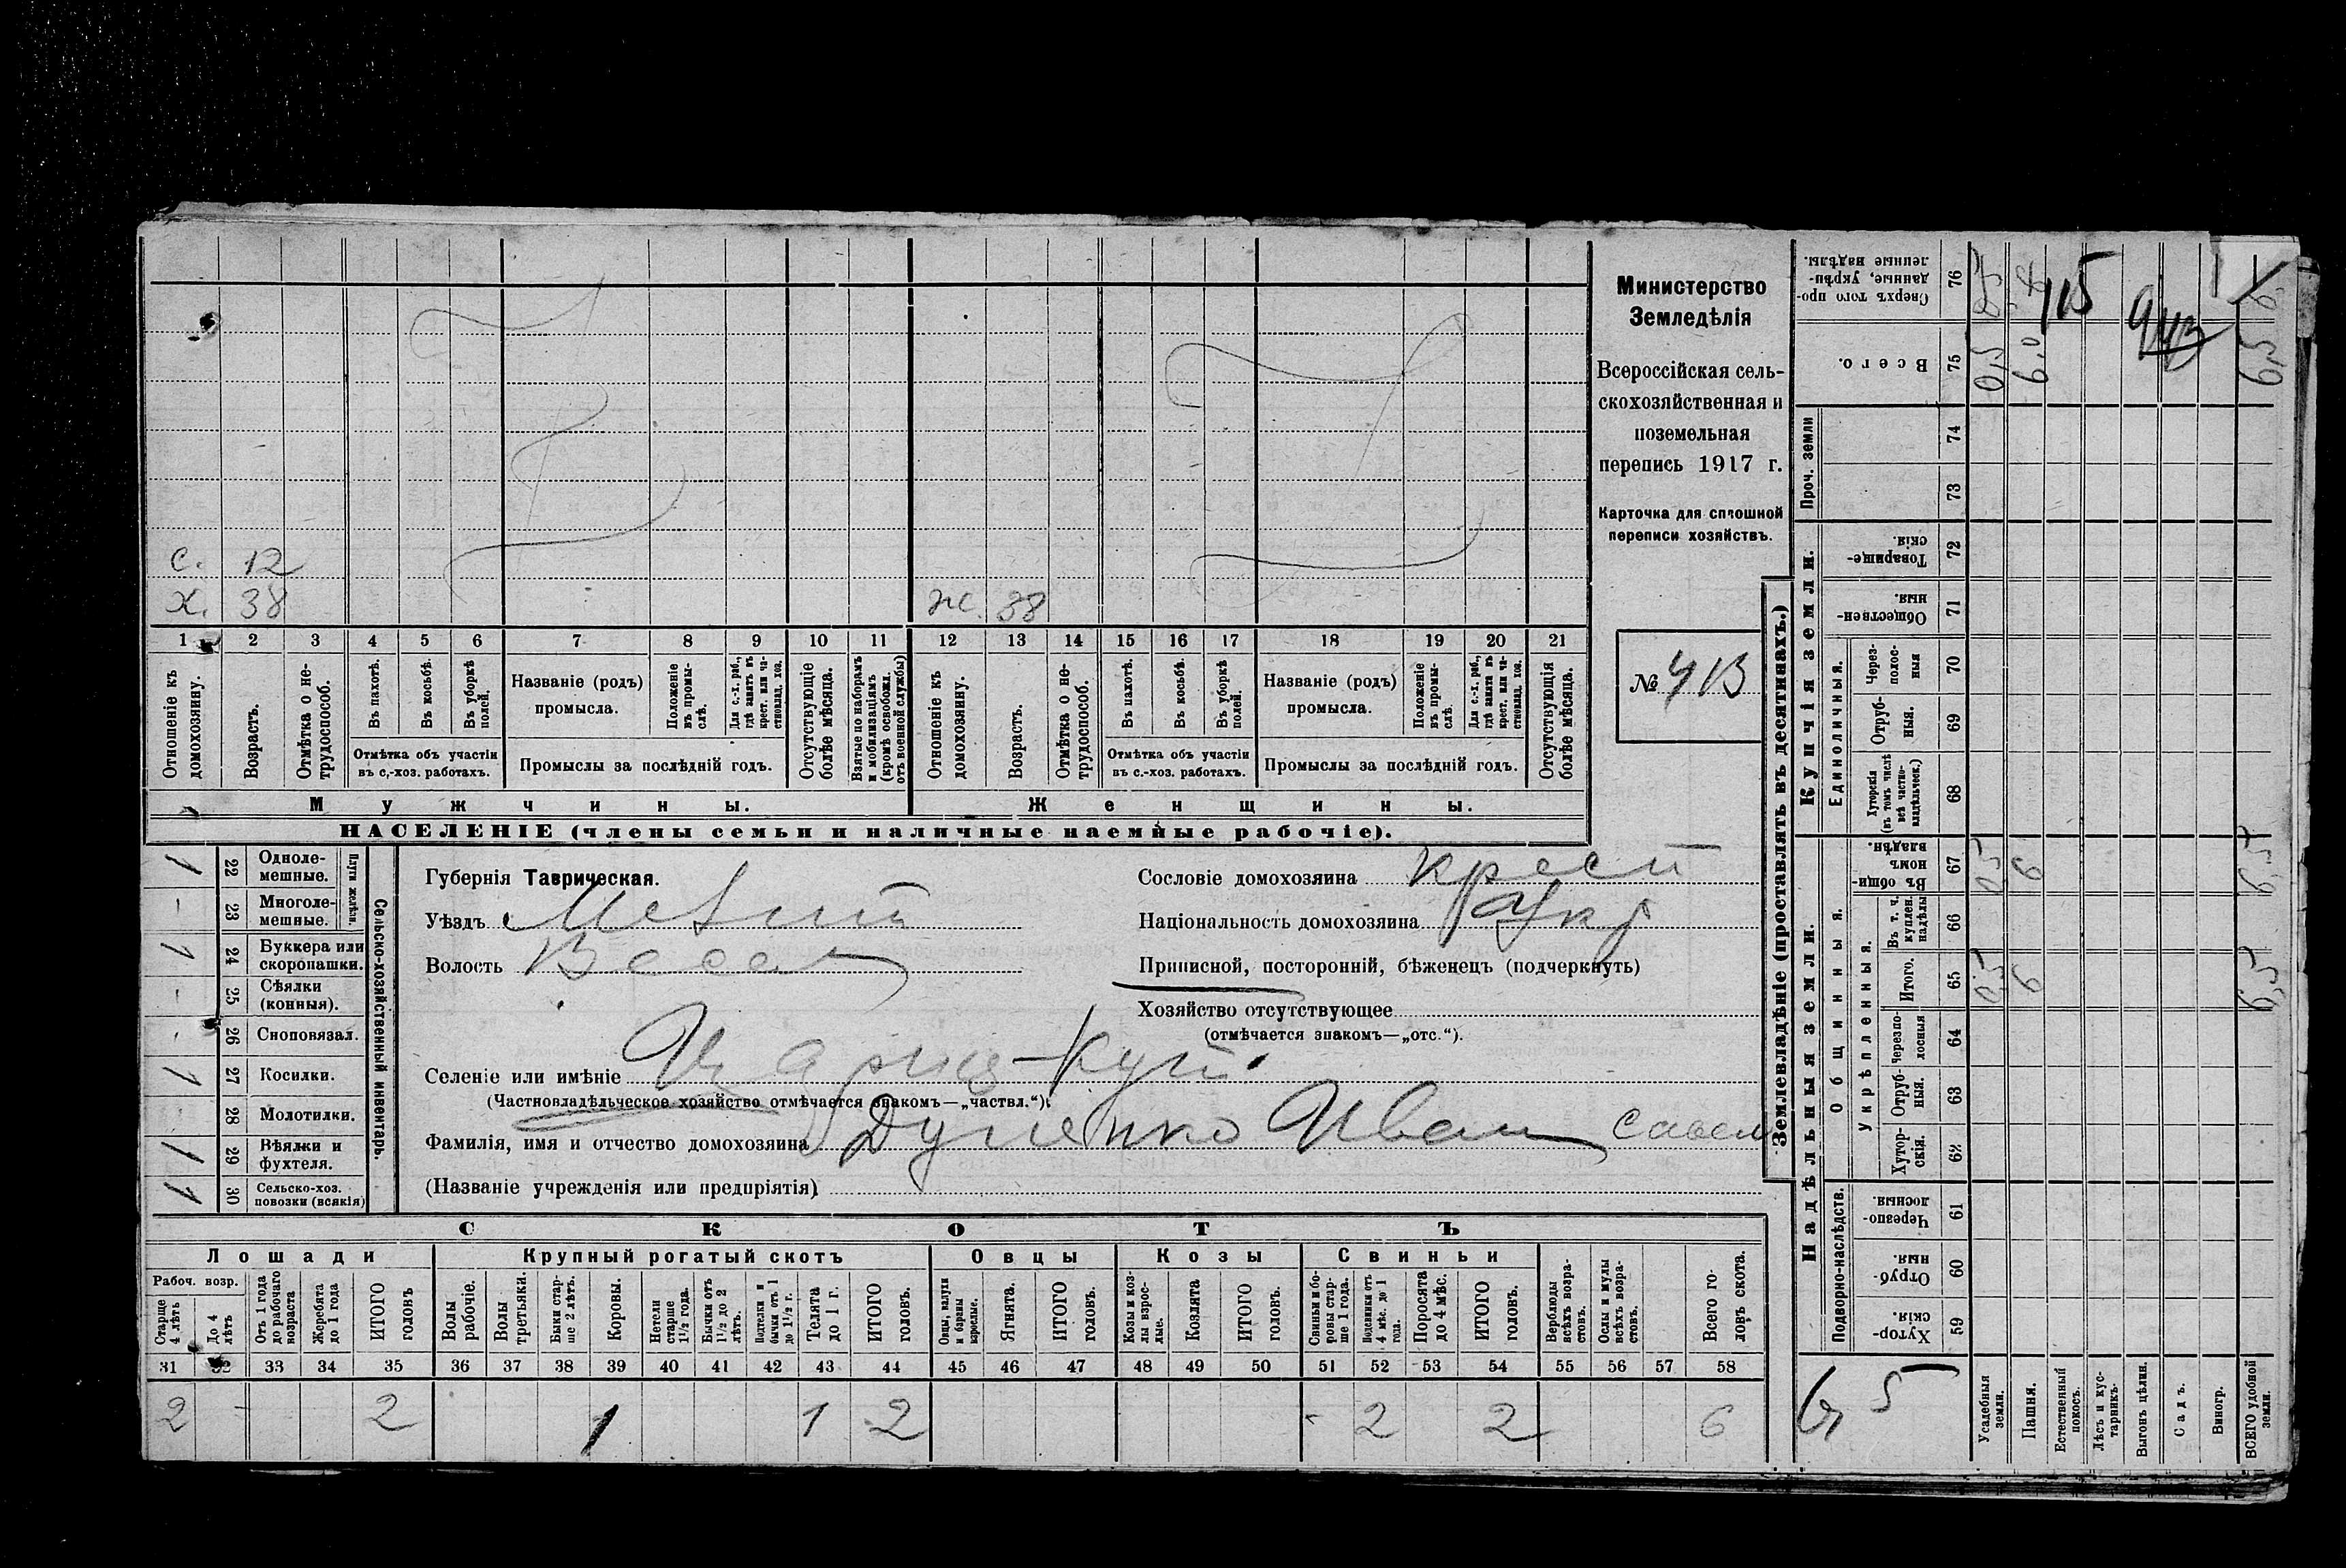 с. 12
х. 38 ж. 38
1 2 3 4 5 6 7 8 9 10 11 12 13 14 15 16 17 18 19 20 21
Отношеніе къ домохозяину.
Возрасть.
Отмѣтка о нетрудоспособ.
Въ пахотѣ.
Въ косьбѣ.
Въ уборкѣ полей.
Отмѣтка объ участіи
въ с,-хоз. работахъ.
Названіе (родъ)
промысла.
Положеніе въ промыслѣ.
Для с.-х. раб., гдѣ занятъ въ крест. или частновлад. хоз.
Промыслы за послѣдній годъ.
Отсутствующіе болѣе мѣсяца.
Взятые по наборамъ и мобилизаціямъ (кромѣ освобожд. отъ военной службы)
Отношеніе къ домохозяину.
Возрасть.
Отмѣтка о нетрудоспособ.
Въ пахотѣ.
Въ косьбѣ.
Въ уборкѣ полей.
Отмѣтка объ участіи
въ с.-хоз. работахъ.
Названіе (родъ)
промысла.
Положеніе въ промыслѣ.
Для с.-х. раб., гдѣ занята въ крест. или частновлад. хоз.
Промыслы за послѣдній годъ.
Отсутствующія болѣе мѣсяца.
Мужчины. Женщины.
НАСЕЛЕНІЕ (члены семьи и наличные наемные рабочіе).
Министерство
Земледѣлія
Всероссійская сель-
скохозяйственная и
поземельная
перепись 1917 г.
Карточка для сплошной
переписи хозяйствъ.
№ 413
Сельско-хозяйственный инвентарь.
Плуги желѣзн.
1 22 Одноле-
мешные.
- 23 Многоле-
мешные.
1 24 Буккера или
скоропашки.
- 25 Сѣялки
(конныя).
- 26 Сноповязал.
1 27 Косилки.
28 Молотилки.
1 29 Вѣялки и
фухтеля.
1 30 Сельско-хоз.
повозки (всякія)
Губернія Таврическая.
Уѣздъ
Волость
Сословіе домохозяина крест
Національность домохозяина Укр
Приписной, посторонній, бѣженецъ (подчеркнуть)
Хозяйство отсутствующее
(отмѣчается знакомъ—„отс.“).
Селеніе или имѣніе
(Частновладѣльческое хозяйство отмѣчается знакомъ—„частвл.“).
Фамилія, имя и отчество домохозяина Иван Савел
(Названіе учрежденія или предпріятія)
СКОТЪ
Лошади Крупный рогатый скотъ Овцы Козы Свиньи
Рабоч. возр.
Старше 4 лѣтъ
До 4 лѣтъ
Отъ 1 года до рабочаго возраста
Жеребята до 1 года
ИТОГО головъ
Волы рабочіе.
Волы третьяки.
Быки старше 2 лѣтъ.
Коровы.
Нетели старше 1½ года.
Бычки отъ 1½ до 2 лѣтъ.
Подтелки и бычки отъ 1 до 1½ г.
Телята до 1 г.
ИТОГО головъ.
Овцы, валухи и бараны взрослые.
Ягнята.
ИТОГО головъ.
Козы и козлы взрослые.
Козлята
ИТОГО головъ.
Свиньи и боровы старше 1 года.
Подсвинки отъ 4 мѣс. до 1 года.
Поросята до 4 мѣс.
ИТОГО головъ.
Верблюды всѣхъ возрастовъ.
Ослы и мулы всѣхъ возрастовъ.
Всего головъ скота.
31 32 33 34 35 36 37 38 39 40 41 42 43 44 45 46 47 48 49 50 51 52 53 54 55 56 57 58
2 - 2 1 1 2 - 2 2 6
Землевладѣніе (проставлять въ десятинахъ.)
Сверхъ того проданные, укрѣпленные надѣлы. 76
115
413
Всего. 75 0,5 6.0 6,5
Проч. земли 74 73
Купчія земли.
Товарищескія. 72
Общественныя. 71
Единоличныя.
Черезполосныя 70
Отрубныя. 69
Хуторскія (въ томъ числѣ всѣ частновладѣльческ.) 68
Надѣльныя земли.
Общинныя.
Въ общинномъ владѣн. 67 0,5 6 6,5
Укрѣпленныя.
Въ т. ч. куплен. надѣлы 66
Итого. 65 0,5 6 6,5
Черезполосныя 64
Отрубныя. 63
Хуторскія. 62
Подворно-наслѣдств.
Черезполосныя 61
Отрубныя. 60
Хуторскія 59
5
Усадебныя земли.
Пашня.
Естественный покосъ.
Лѣсъ и кустарникъ.
Выгонъ цѣлин.
Садъ.
Виногр.
ВСЕГО удобной земли.